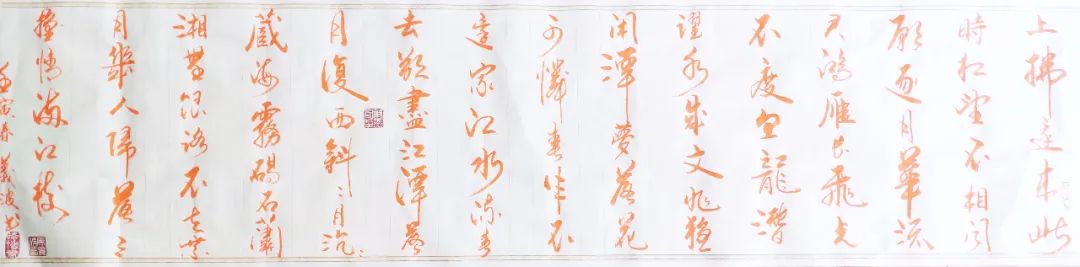 上拂還来此
時相望不相闻
願逐月華流
君鴻雁长飛光
不度鱼龍潛
躍水成文昨夜
闲潭夢落花
可憐春半不
還家江水流春
去欲盡江潭落
月復西斜〻月沉〻
藏海霧碣石瀟
湘無限路不知乘
月幾人歸落月
搖情滿江樹
壬寅春義波书